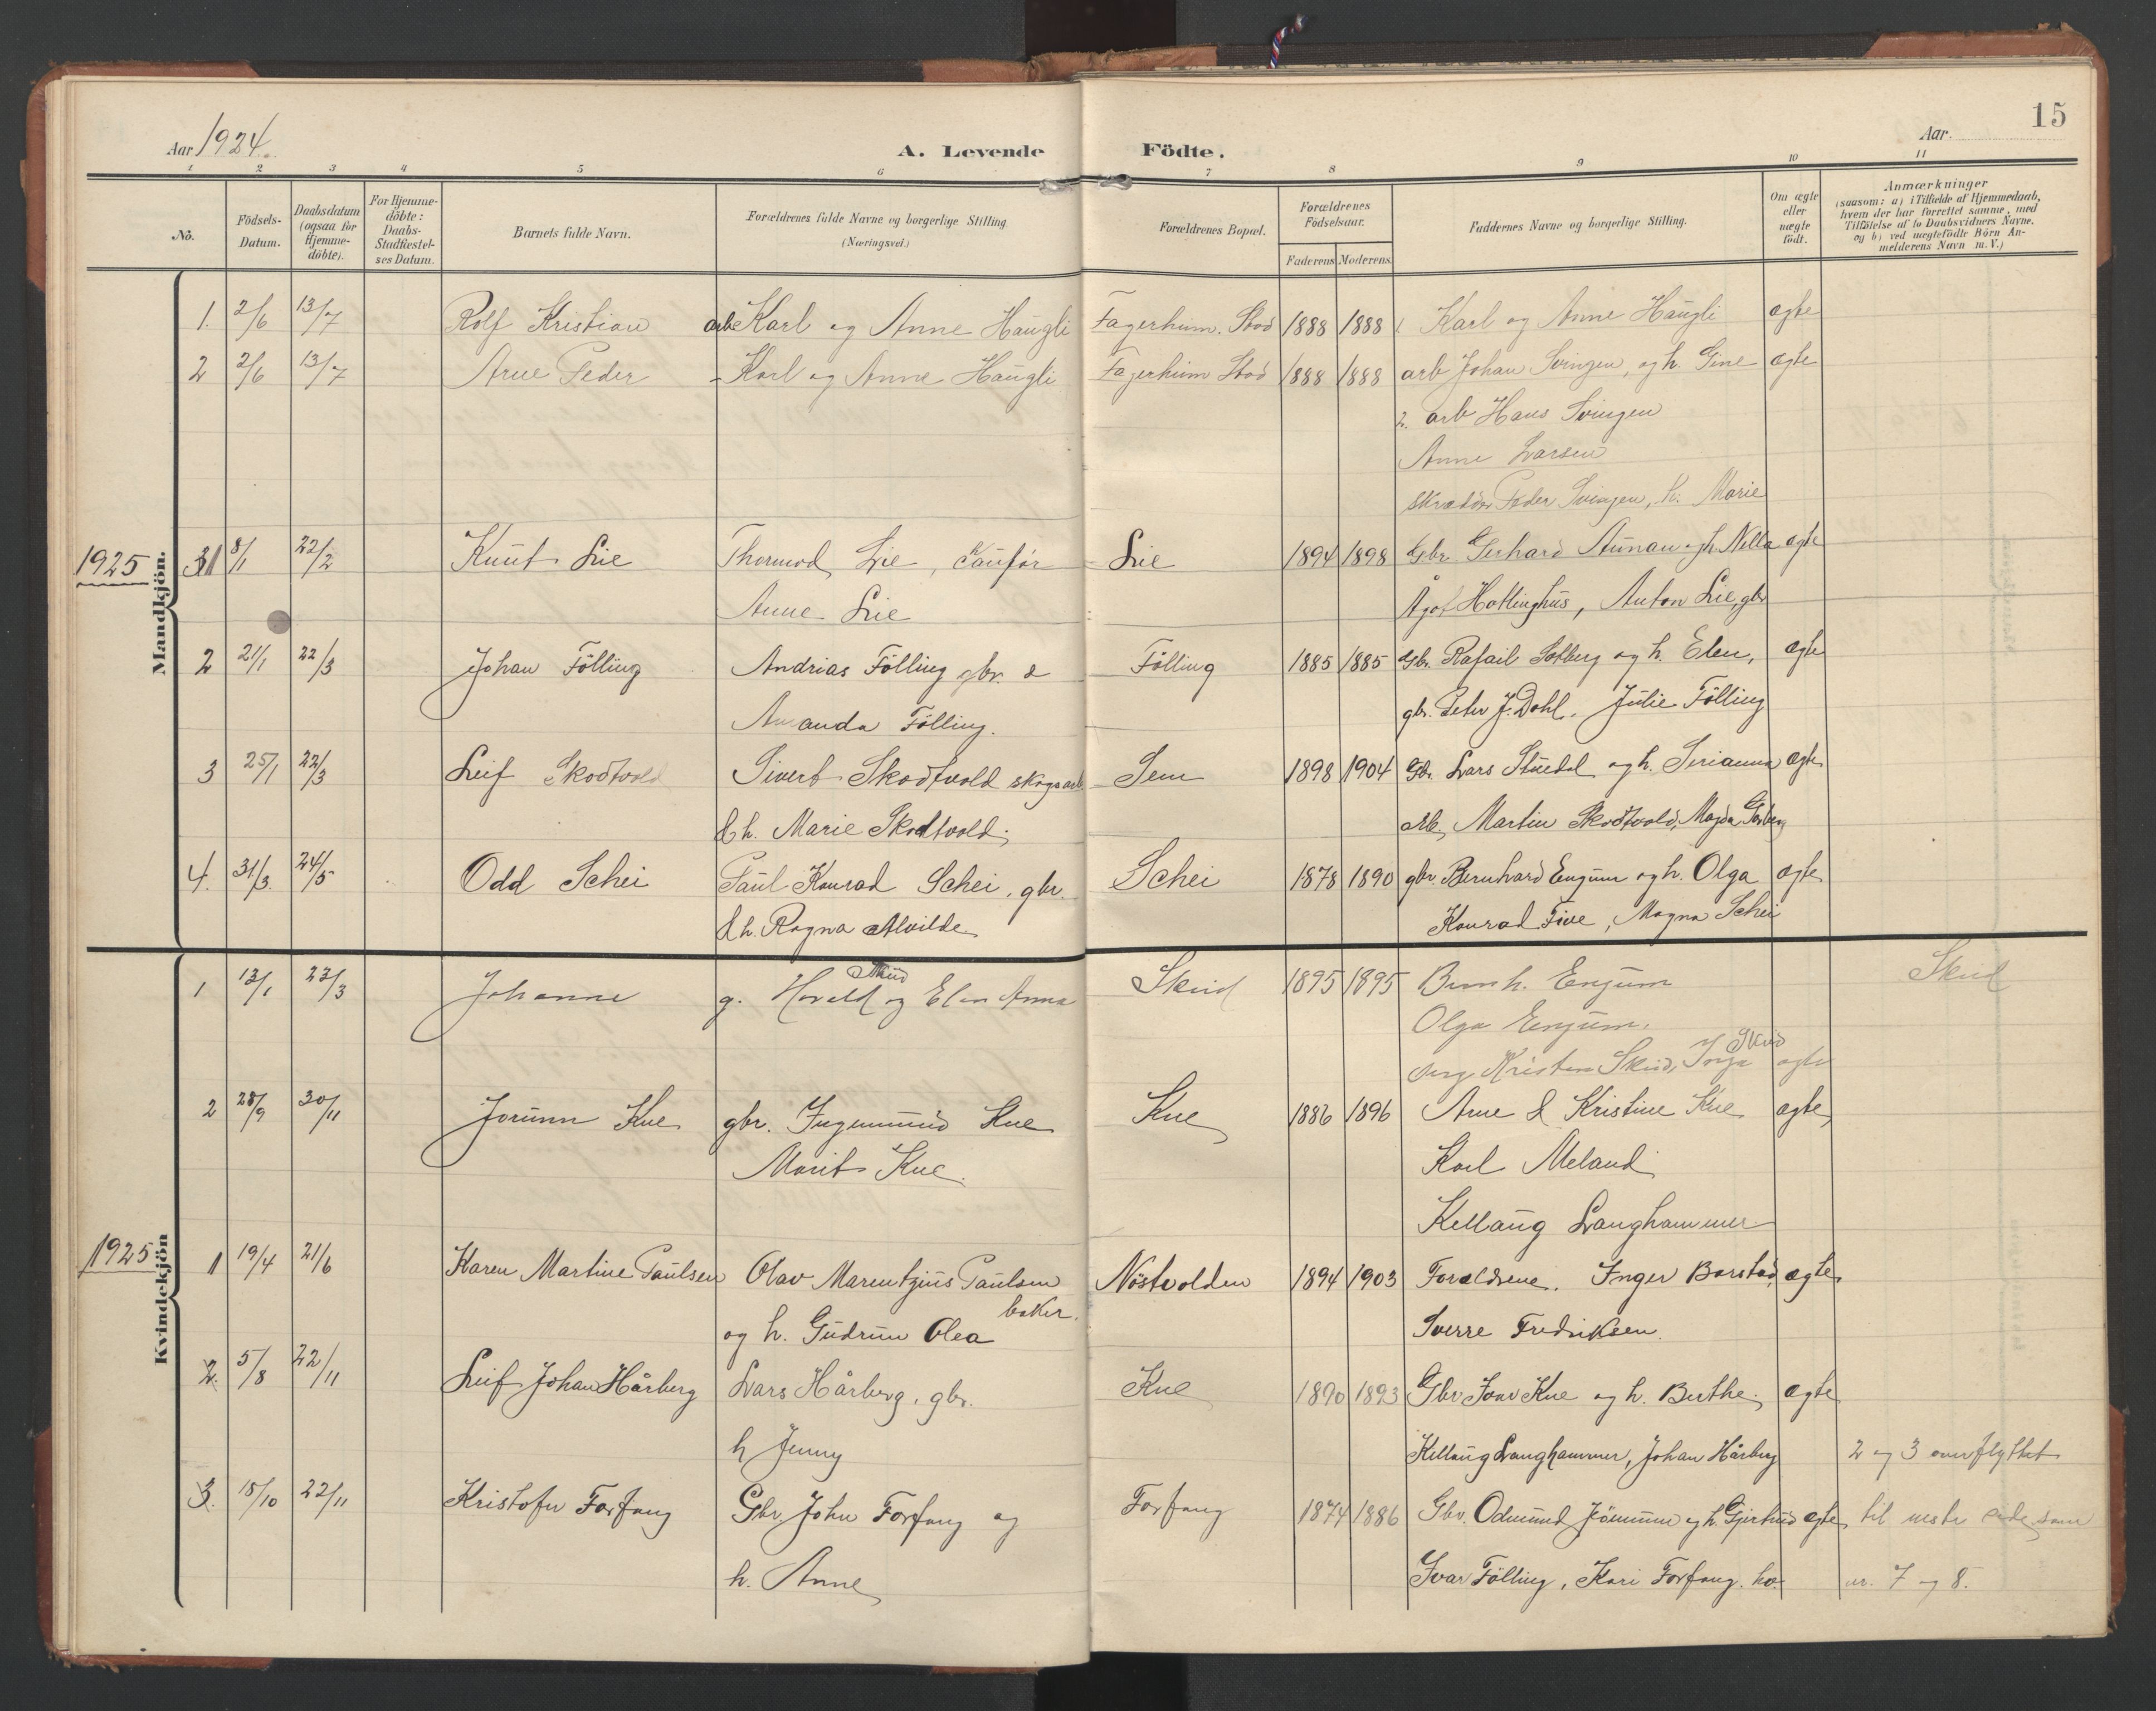 15
Aar 1924.
A. Levende Födte.
Aar.
1 2 3 4 5 6 7 8 9 10 11
No.
Födsels-Datum.
Daabsdatum (ogsaa for Hjemme-döbte).
For Hjemme-döbte: Daabs-Stadfæstel-ses Datum.
Barnets fulde Navn.
Forældrenes fulde Navne og borgerlige Stilling
(Næringsvei.)
Forældrenes Bopæl.
Forældrenes Födselsaar.
Faderens Moderens.
Faddernes Navne og borgerlige Stilling.
Om ægte eller uægte födt.
Anmærkninger
(saasom: a) i Tilfælde af Hjemmedaab, hvem der har forrettet samme, med Tilföielse af to Daabsvidners Navne, og b) ved uægtefödte Börn An-melderens Navn m. V.)
Mandkjön.
1. 2/6 13/7 Rolf Kristian arb Karl og Anne Haugli Fagerheim. Stod 1888 1888 Karl og Anne Haugli ægte
2 2/6 13/7 Arne Peder - Karl og Anne Haugli Fagerheim Stod 1888 1888 arb Johan Svingen, og h. Gine ægte
2. arb Hans Svingen
Anne Larsen
Peder Svingen, h. Marie
1925 1 8/1 22/2 Knut Lie Thormod Lie, Lie 1894 1898 Gbr. Gerhard Aunan og h. Nella ægte
Anne Lie Hattinghus, Anton Lie, gbr
2 21/1 22/3 Johan Fölling Andrias Fölling gbr. & Fölling 1885 1885 Gbr. Rafail Solberg og h. Elen, ægte
Amanda Fölling. gbr. Peter J. Dahl. Julie Fölling
3 25/1 22/3 Leif Skodtvold Sivert Skodtvold skogsarb Sem 1898 1904 Gbr. Lars og h. Serianna ægte
& h. Marie Skodtvold; arb. Martin Skodtvold, Magda
4. 31/3. 24/5 Odd Schei Paul Konrad Schei, gbr. Schei 1878 1890 gbr. Bernhard Engum og h. Olga ægte
& h. Ragna Alvilde Konrad Five, Magna Schei
Kvindekjön
1 13/1 23/3 Johanne g. Harald Skud og Elen Anna Skeid 1895 1895 Bernh. Engum Skeid
Olga Engum.
Kristen Skeid, Inga Skeid ægte
2 28/9 30/11 Jorunn Kne gbr. Ingemund Kne Kne 1886 1896 Arne & Kristine Kne ægte
Marit Kne. Karl Meland
Kellaug Langhammer
1925 1 19/4 21/6 Karen Martine Paulsen Olav Marentzius Paulsen Nöstvolden 1894 1903 Forældrene. Inger Barstad, ægte
baker.
og h. Gudrun Olea Sverre Fredriksen.
2. 5/8 22/11 Leif Johan Hårberg Lars Hårberg, gbr. Kne 1890 1893 Gbr. Ivar Kne og h. Berthe. ægte
h Jenny Kellaug Langhammer, Johan Hårberg 2 og 3 overflyttet
3. 18/10 22/11 Kristofer Forfang Gbr. John Forfang og Forfang 1874 1886 Gbr. Odmund Jömunn og h. Gjertrud ægte til neste side som
h. Anne Ivar Fölling, Kari Forfang. nr. 7 og 8.